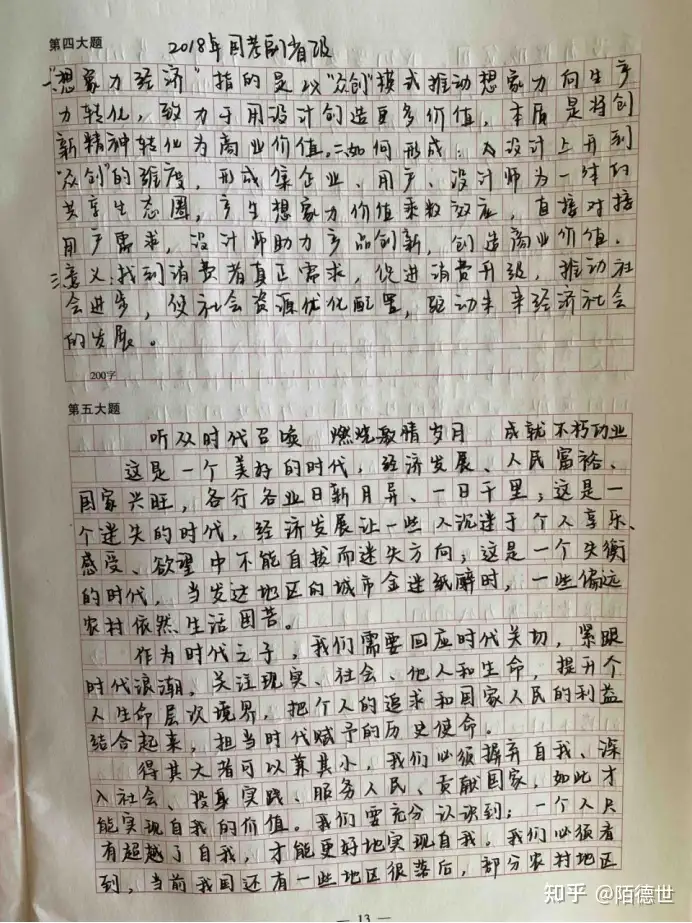 第四大题
2018年国考副省级
一、"想象力经济"指的是以"众创"模式推动想象力向生产
力转化，致力于用设计创造更多价值，本质是将创
新精神转化为商业价值。二、如何形成：从设计上升到
"众创"的维度，形成集企业、用户、设计师为一体的
共享生态圈，产生想象力价值乘数效应，直接对接
用户需求，设计师助力产品创新，创造商业价值。
三、意义：找到消费者真正需求，促进消费升级，推动社
会进步，使社会资源优化配置，驱动未来经济社会
的发展。
200字
第五大题
听从时代召唤 燃烧激情岁月 成就不朽功业
这是一个美好的时代，经济发展、人民富裕、
国家兴旺，各行各业日新月异、一日千里；这是一
个迷失的时代，经济发展让一些人沉迷于个人享乐、
感受、欲望中不能自拔而迷失方向；这是一个失衡
的时代，当发达地区的城市金迷纸醉时，一些偏远
农村依然生活困苦。
作为时代之子，我们需要回应时代关切，紧跟
时代浪潮，关注现实、社会、他人和生命，提升个
人生命层次境界，把个人的追求和国家人民的利益
结合起来，担当时代赋予的历史使命。
得其大者可以兼其小，我们必须摒弃自我、深
入社会、投身实践、服务人民、贡献国家，如此才
能实现自我的价值。我们要充分认识到：一个人只
有超越了自我，才能更好地实现自我。我们必须看
到，当前我国还有一些地区很落后，部分农村地区
— 13 —
知乎 @陌德世